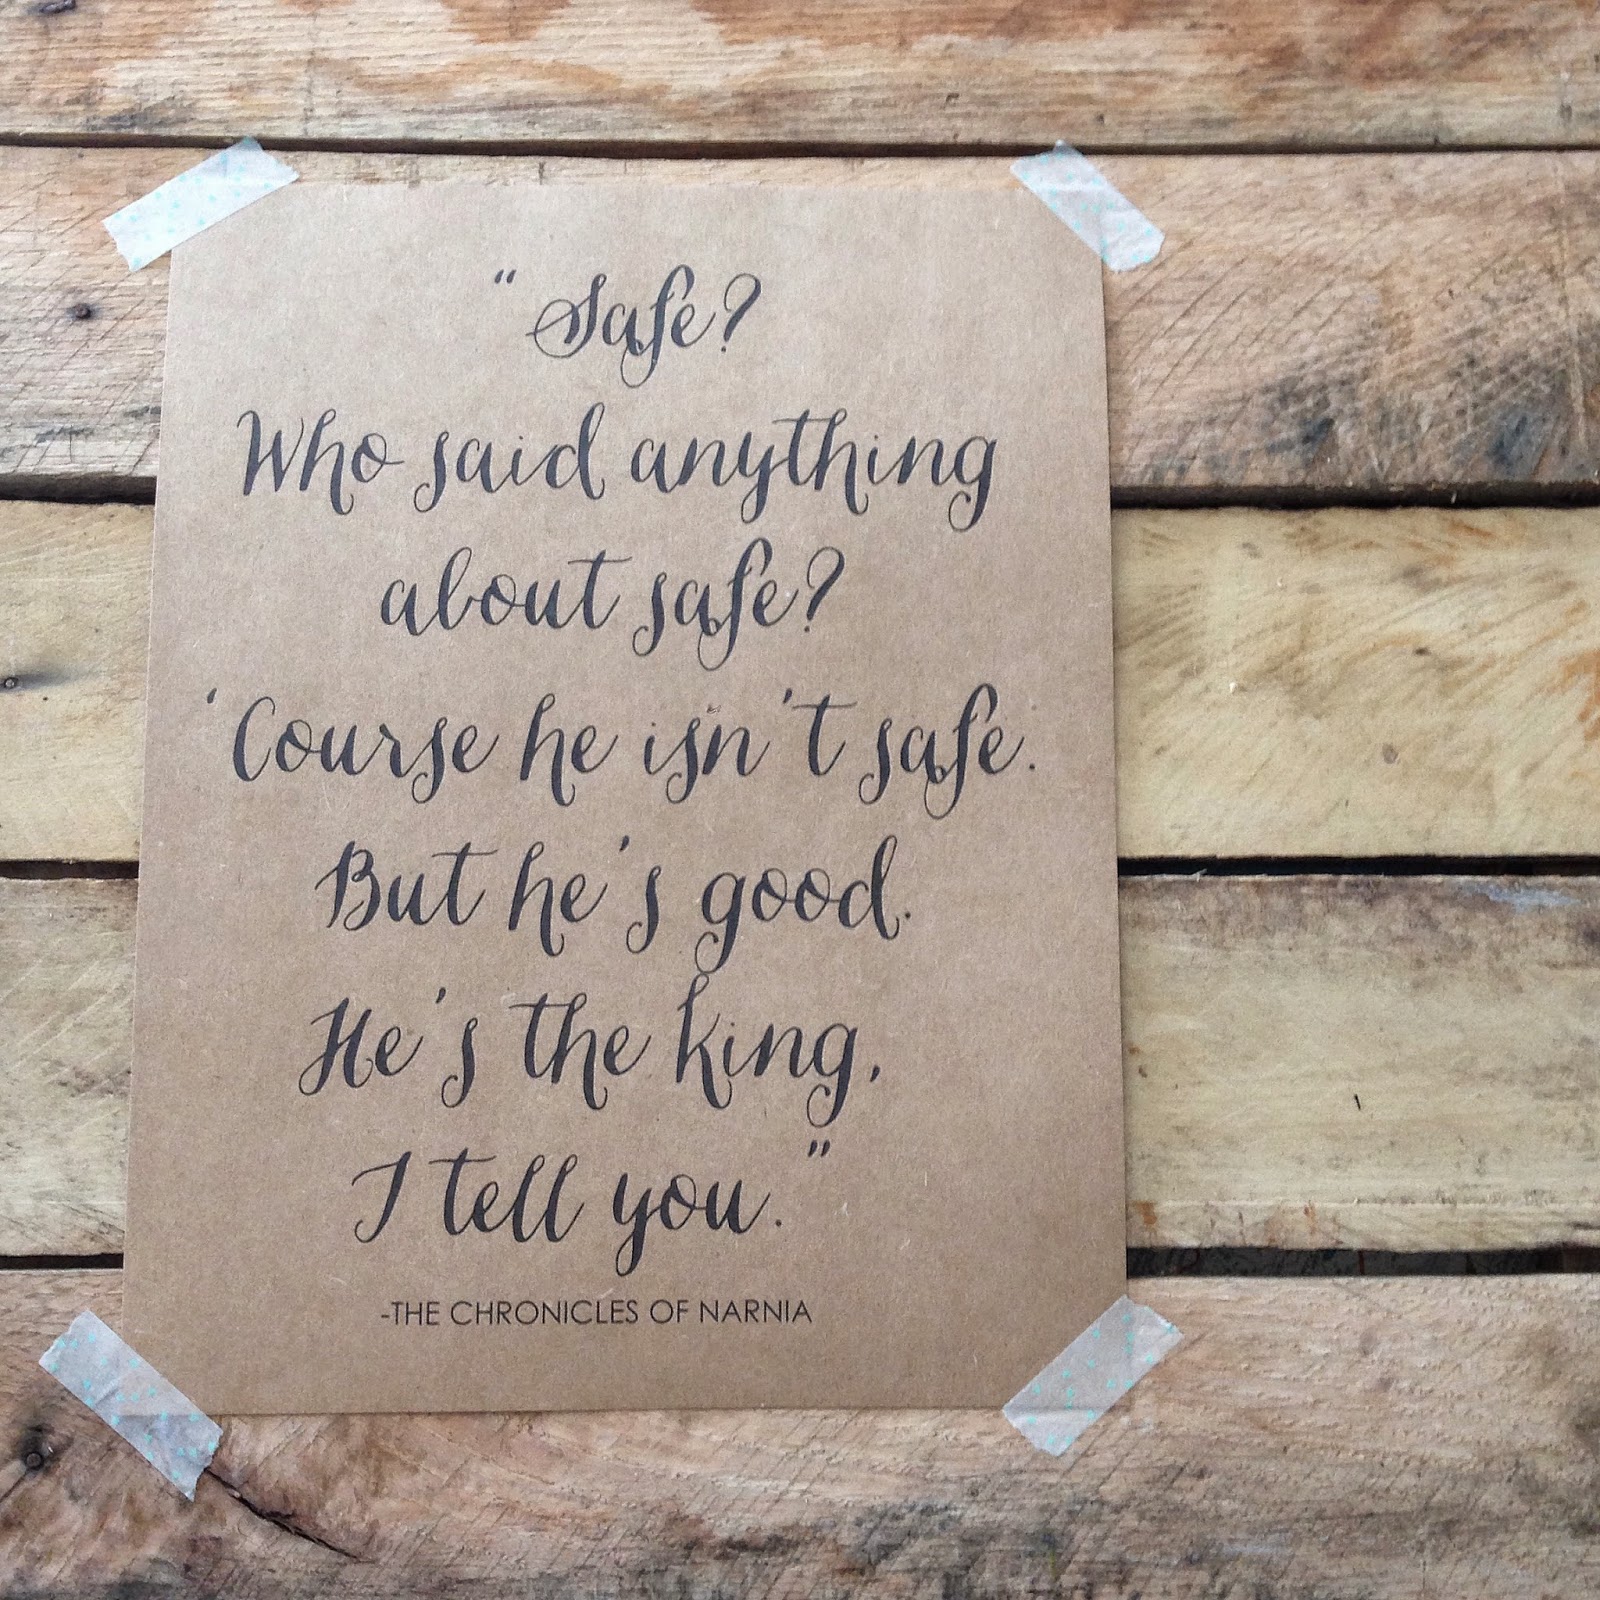 “Safe?
Who said anything
about safe?
‘Course he isn't safe.
But he's good.
He's the king,
I tell you.”
-THE CHRONICLES OF NARNIA